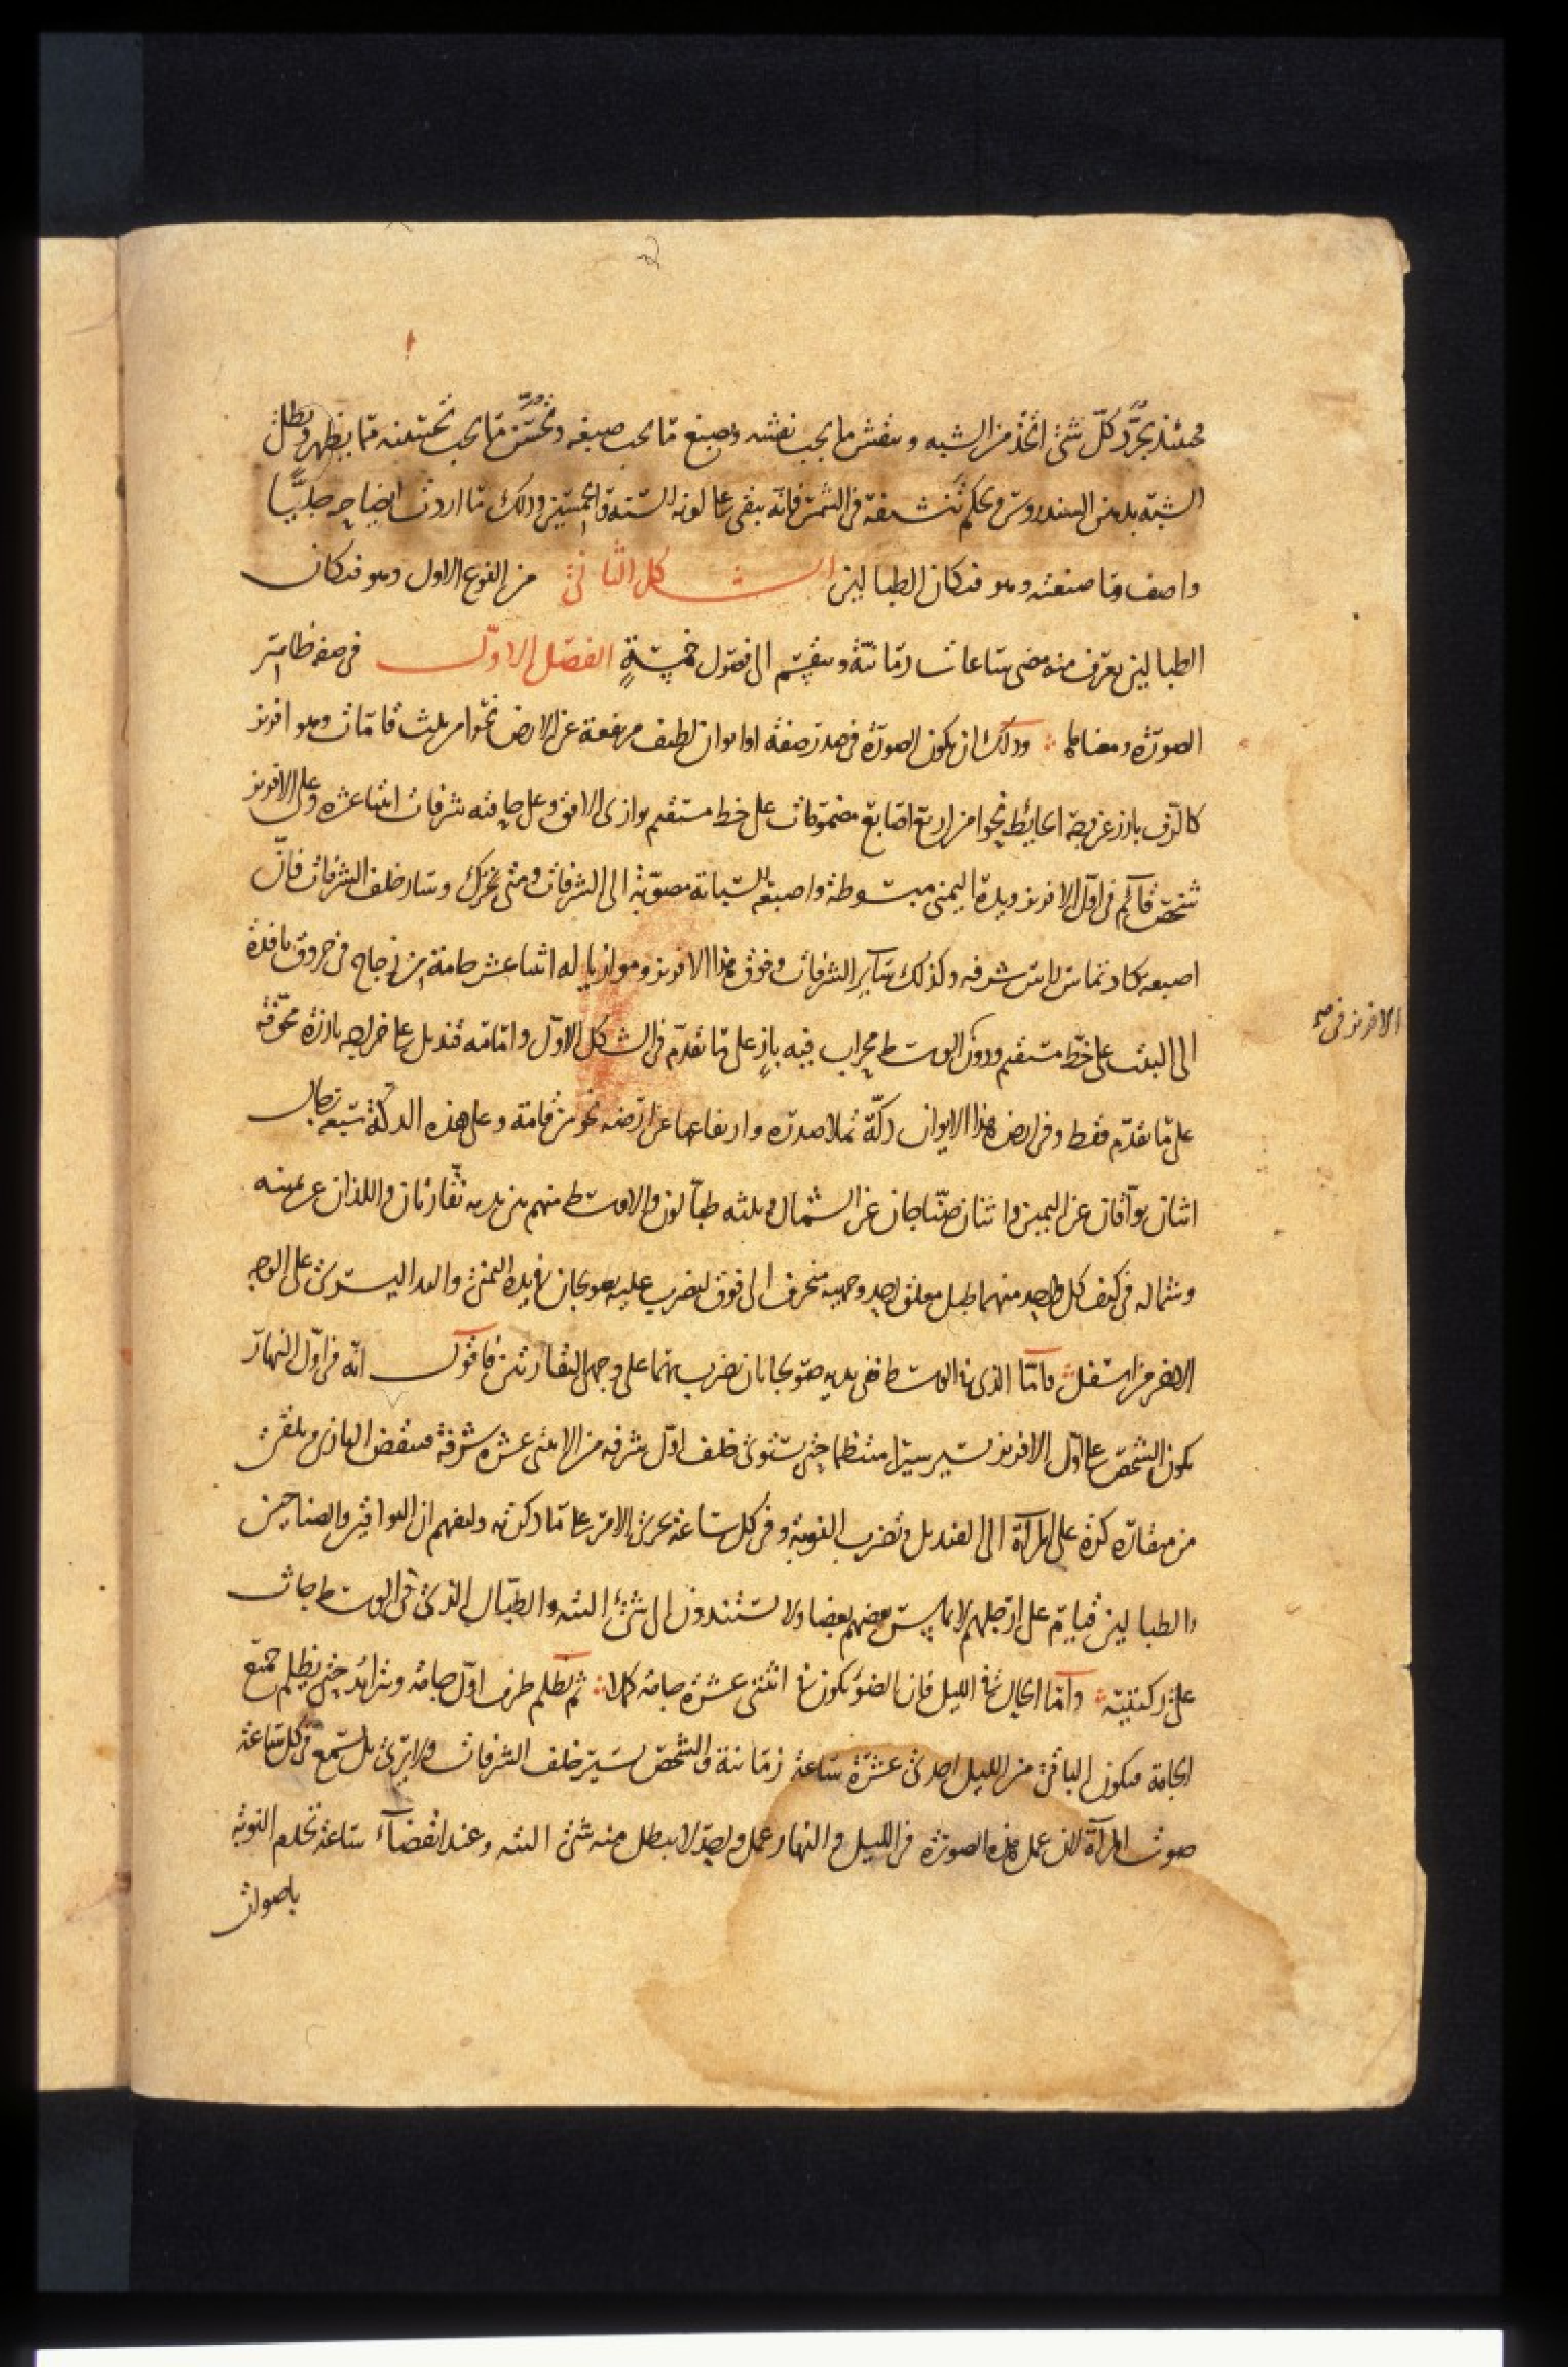 فحينئذ يجرّد كلّ شئ اتخذ من الشبه وينقش ما يجب نقشه ويصبغ ما يجب صبغه ويحسّن ما يجب تحسينه مما يظهر ويطلى
الشبه بدهن السندروس ويحكم تنشيفه فى الشمس فانه يبقى على لونه السنة والسنتين وذلك ما اردت ايضاحه جليّا
واصف ما صنعته وهو فنكان الطبالين الشكل الثانى من النوع الاول وهو فنكان
الطبالين يعرف منه مضى ساعات زمانية وينقسم الى فصول خمسة الفصل الاول فى صفة ظاهر
الصورة ومعناها وذلك ان يكون الصورة فى صدر صفة او ايوان لطيف مرتفعة عن الارض نحوا من ثلث قامات وهو افريز
كالرف بارز عن وجه الحايط نحوا من اربع اصابع مضمومات على خط مستقيم يوازى الافق وعلى حافته شرفات اثنتا عشرة وعلى الافريز
شخص قايم فى اول الافريز ويده اليمنى مبسوطة واصبعه السبابة مصوبة الى الشرفات ومتى تحرك وسار خلف الشرفات فان
اصبعه تكاد تماس راس شرفه وكذلك ساير الشرفات وفوق هذا الافريز وموازيا له اثنتا عشر جامة من زجاج فى خروق نافذة
الى البيت على خط مستقيم ودون الوسط محراب فيه باز على ما تقدم فى الشكل الاول وامامه قنديل على خراجه بارزة مجوفة
على ما تقدم فقط وفى ارض هذا الايوان دكة تملا صدره وارتفاعها عن ارضه نحو من قامة وعلى هذه الدكة سبعة رجال
اثنان بواقان عن اليمين واثنان صناجان عن الشمال وثلثه طبالون والاوسط منهم بين يديه نقارتان واللذان عن يمينه
وشماله فى كتف كل واحد منهما طبل معلق احد وجهيه منحرف الى فوق ليضرب عليه بصولجان فى يده اليمنى واليد اليسرى على الوجه
الاخر من اسفل واما الذى فى الوسط ففى يديه صولجانان يضرب بهما على وجهى النقارتين فاقول انه فى اول النهار
يكون الشخص على اول الافريز يسير سيرا منتظما حتى يستوى خلف اول شرفه من الاثنى عشرة شرفة فينقض البازى ويلقى
من منقاره كرة على المرآة الى القنديل وتضرب النوبة وفى كل ساعة يجرى الامر على ما ذكرته وليفهم ان البواقين والصناجين
والطبالين قيام على ارجلهم لا يماس بعضهم بعضا ولا يستندون الى شئ البته والطبال الذى فى الوسط جاث
على ركبتيه واما الحال فى الليل فان الضوء يكون فى اثنتى عشرة جامة كملا ثم يظلم طرف اول جامة ويتزايد حتى يظلم جميع
الجامة فيكون الباقى من الليل احدى عشرة ساعة زمانية والشخص يسير خلف الشرفات ولا يرى بل يسمع فى كل ساعة
صوت المرآة لان عمل هذه الصورة فى الليل والنهار عمل واحد لا يبطل منه شئ البته وعند انقضاء ساعة تخدم النوبة
باصوات
الافريز فى صح